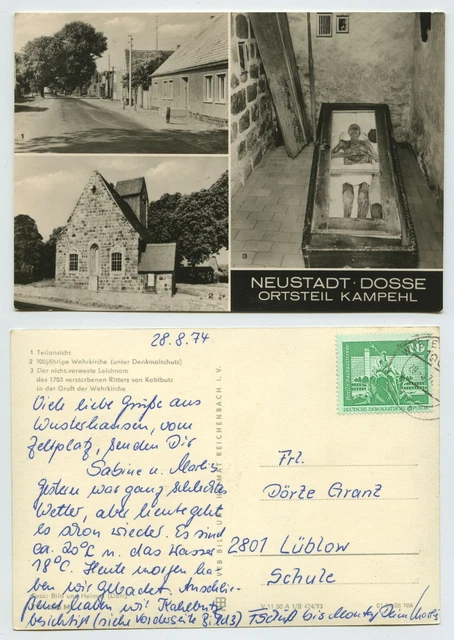 1
2
3
NEUSTADT · DOSSE
ORTSTEIL KAMPEHL
28.8.74
1 Teilansicht
2 700jährige Wehrkirche (unter Denkmalschutz)
3 Der nicht verweste Leichnam
des 1703 verstorbenen Ritters von Kahlbutz
in der Gruft der Wehrkirche
Viele liebe Grüße aus
Wusterhausen, vom
Zeltplatz, senden Dir
Sabine u.
Gestern war ganz schlechtes
Wetter, aber heute geht
es schon wieder. Es sind
ca. 20°C u. das Wasser
18°C. Heute morgen ha-
ben wir gebadet. Anschlie-
ßend haben wir Kahlbutz
besichtigt (siehe Vorderseite Bild 3) Tschüß bis
VEB BILD UND HEIMAT REICHENBACH I. V.
Frl.
Dörte Granz
2801 Lüblow
Schule
Foto: Bild und Heimat
V 11 50 A 1/B 474/73
10
DEUTSCHE DEMOKRATISCHE REPUBLIK